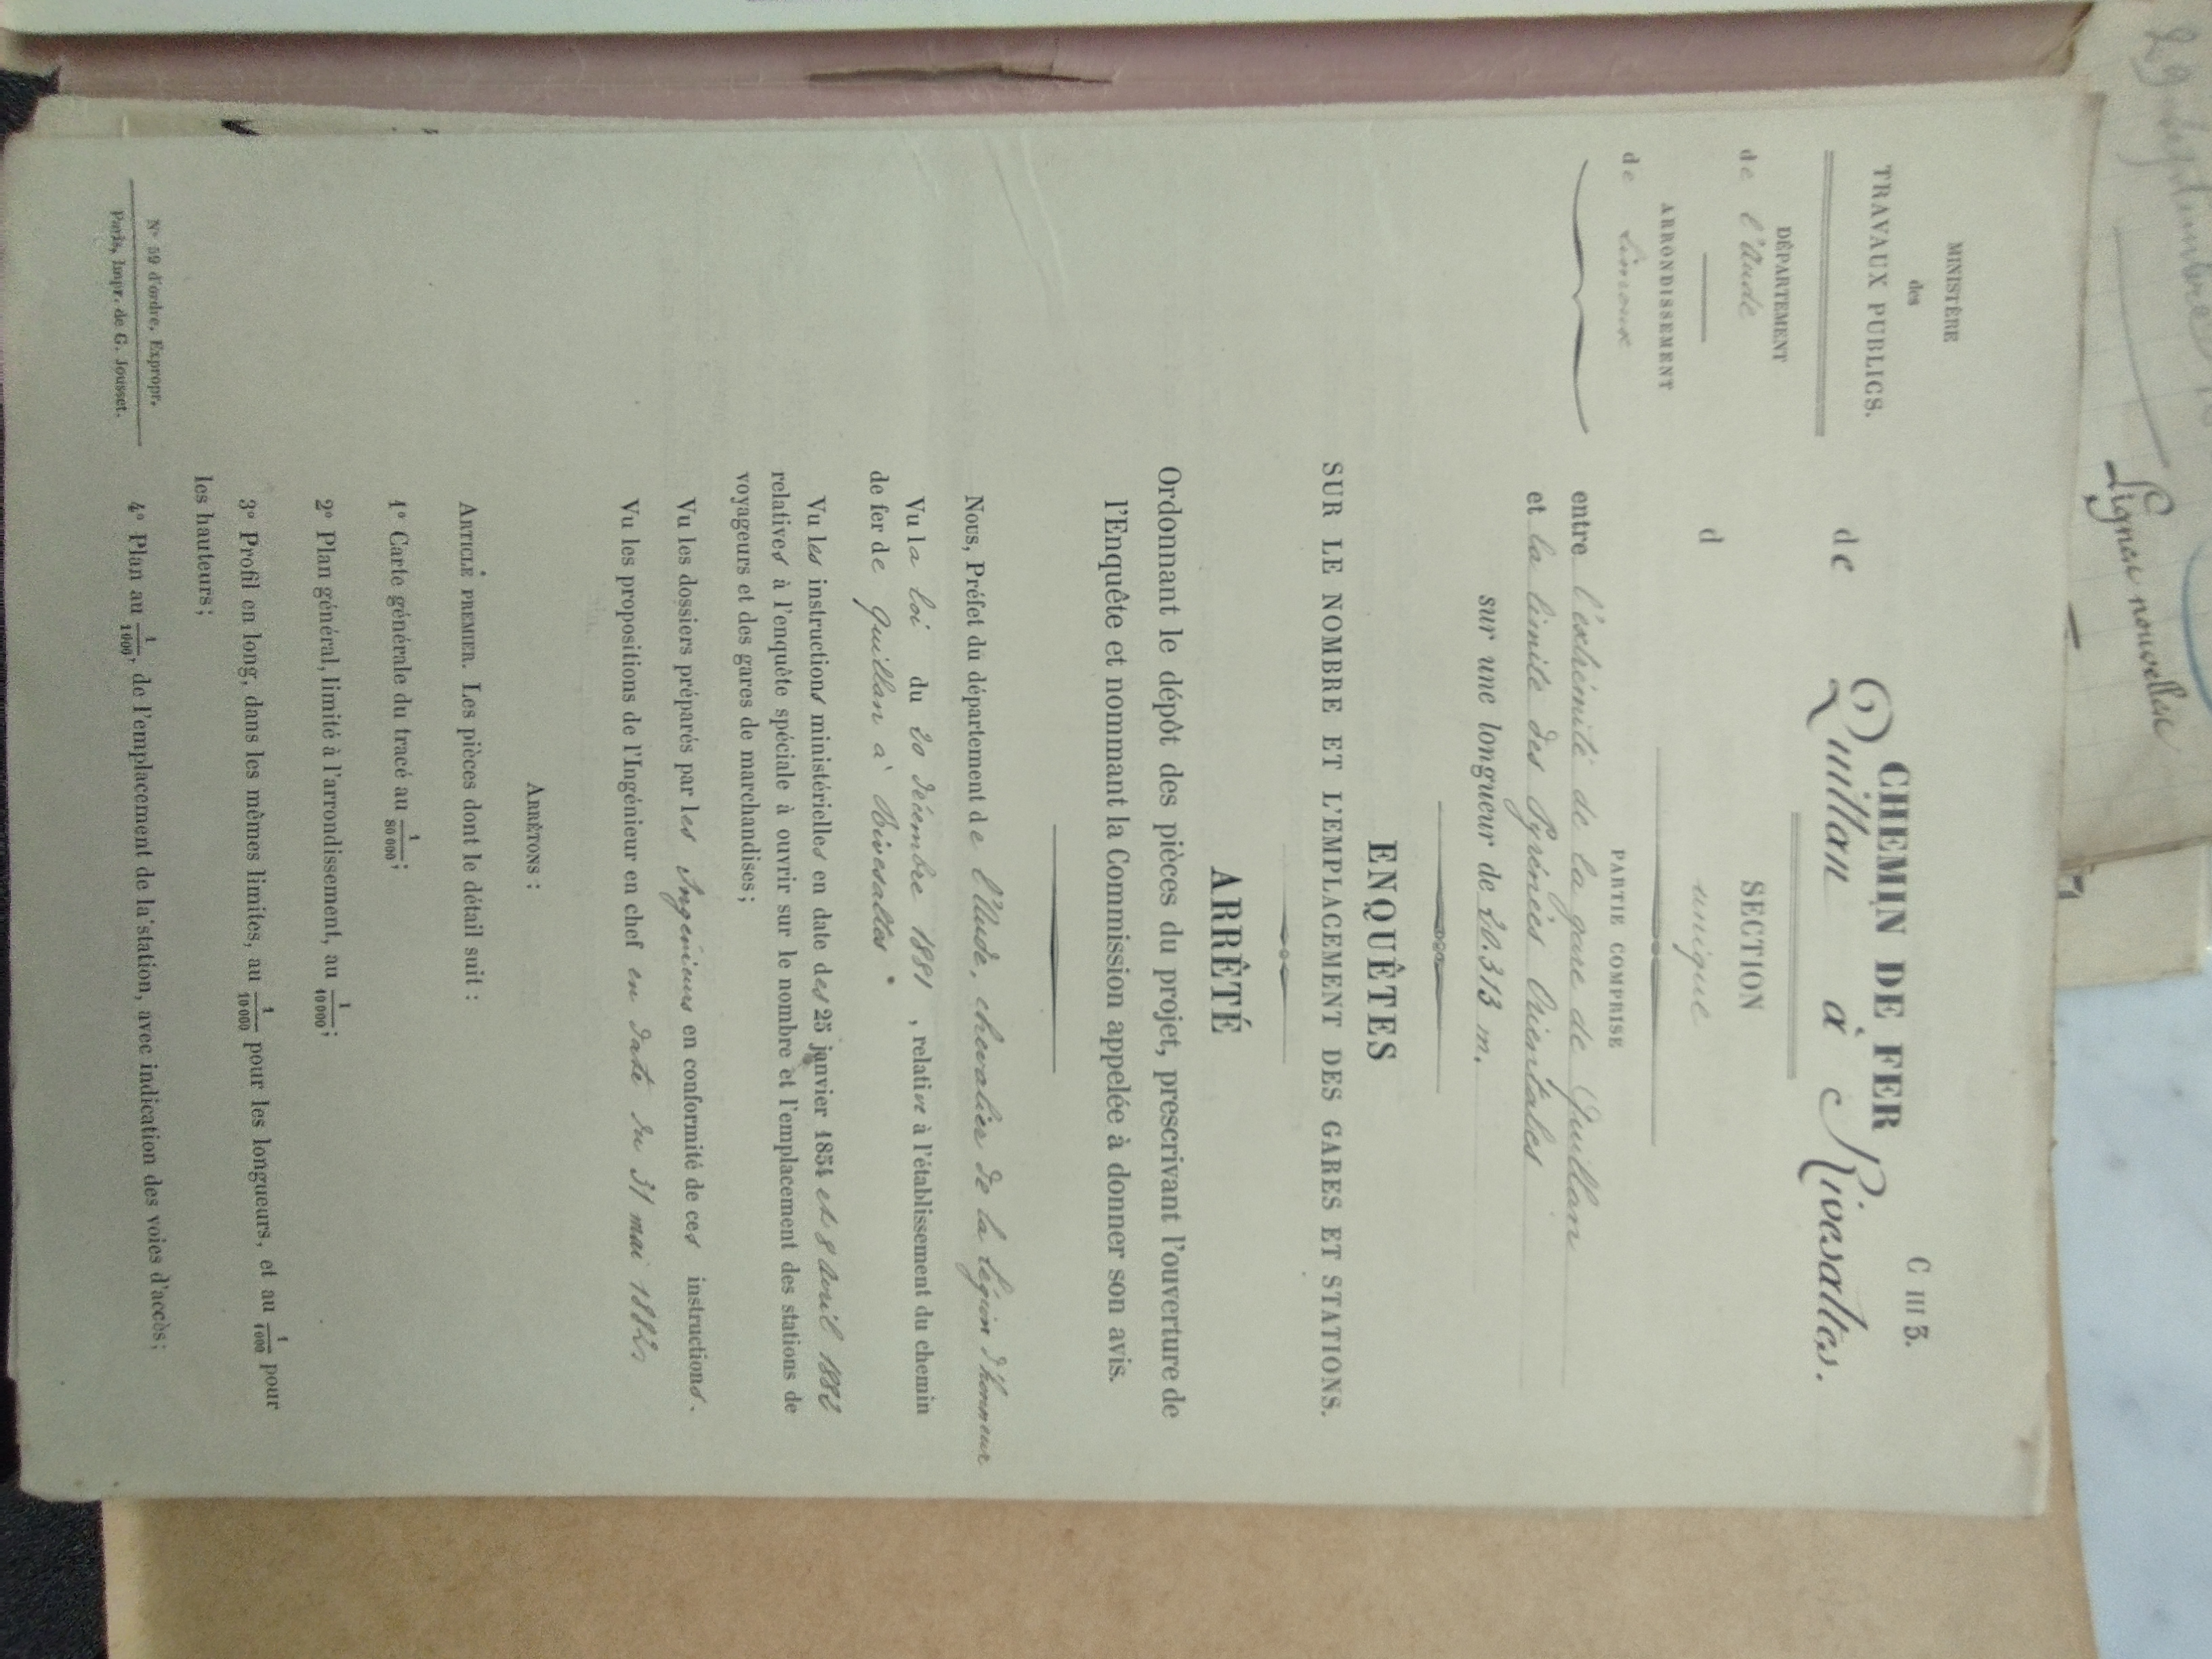 29 septembre
Lignes nouvelles
MINISTÈRE
des
TRAVAUX PUBLICS.
DÉPARTEMENT
de l'Aude
ARRONDISSEMENT
de Limoux
C III 3.
CHEMIN DE FER
de Quillan à Rivesaltes.
SECTION
d unique
PARTIE COMPRISE
entre l'extrémité de la gare de Quillan
et la limite des Pyrénées Orientales
sur une longueur de 20.313 m.
ENQUÊTES
SUR LE NOMBRE ET L'EMPLACEMENT DES GARES ET STATIONS.
ARRÊTÉ
Ordonnant le dépôt des pièces du projet, prescrivant l'ouverture de
l'Enquête et nommant la Commission appelée à donner son avis.
Nous, Préfet du département de l'Aude, chevalier de la Légion d'honneur
Vu la loi du 20 décembre 1881, relative à l'établissement du chemin
de fer de Quillan à Rivesaltes
Vu les instructions ministérielles en date des 25 janvier 1854 et 8 Avril 1882
relatives à l'enquête spéciale à ouvrir sur le nombre et l'emplacement des stations de
voyageurs et des gares de marchandises;
Vu les dossiers préparés par les Ingénieurs en conformité de ces instructions.
Vu les propositions de l'Ingénieur en chef en date du 31 mai 1882
ARRÊTONS :
ARTICLE PREMIER. Les pièces dont le détail suit :
1° Carte générale du tracé au 1/80 000;
2° Plan général, limité à l'arrondissement, au 1/10 000;
3° Profil en long, dans les mêmes limites, au 1/10 000 pour les longueurs, et au 1/1 000 pour
les hauteurs;
4° Plan au 1/1 000, de l'emplacement de la station, avec indication des voies d'accès;
N° 59 d'ordre. Expropr.
Paris, Impr. de G. Jousset.